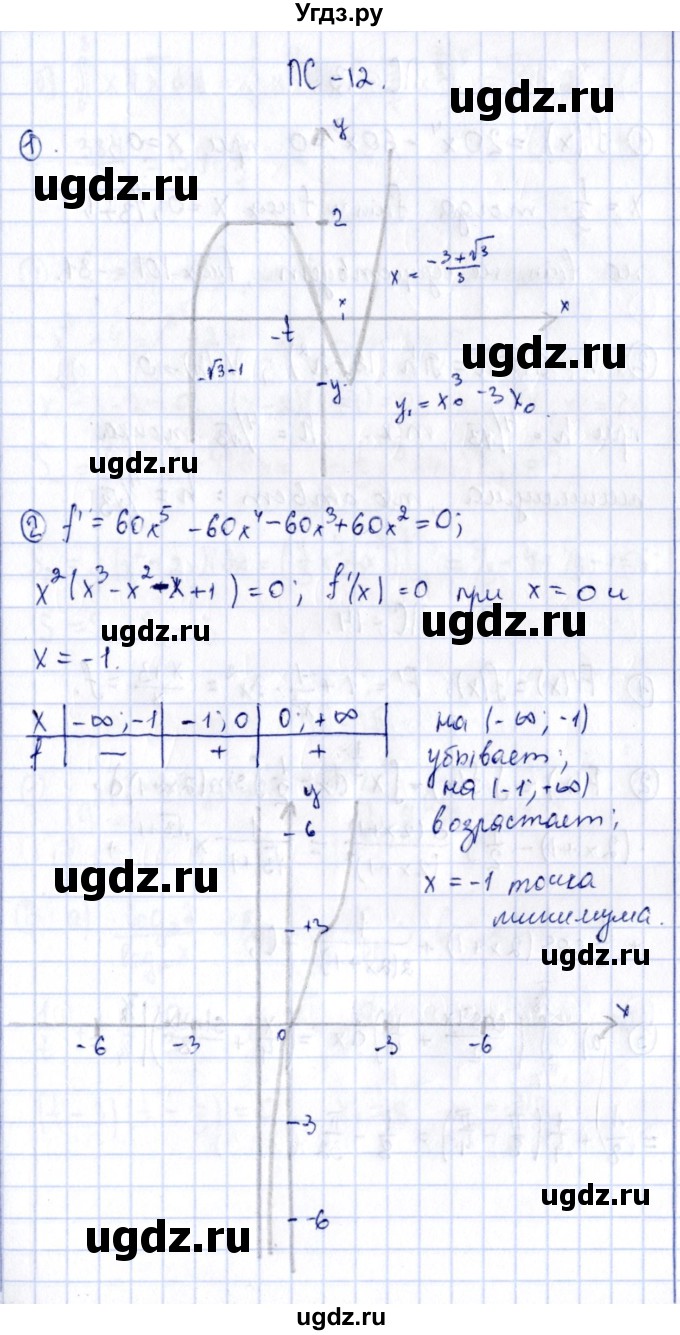 Угдз.ру
ПС -12.
ugdz.ru
1.
y
ugdz.ru
2
x = (-3+√3)/3
x
x
-1
-√3-1
-y
y₁ = x₀³ - 3x₀.
ugdz.ru
ugdz.ru
2 f' = 60x⁵ - 60x⁴ - 60x³ + 60x² = 0;
x²(x³ - x² - x + 1) = 0; f'(x) = 0 при x = 0 и
ugdz.ru
ugdz.ru
x = -1.
x | -∞; -1 | -1; 0 | 0; +∞ |
f | — | + | + |
на (-∞; -1)
убывает;
на (-1; +∞)
возрастает;
x = -1 точка
минимума.
y
-6
ugdz.ru
-+3
ugdz.ru
x
-6
-3
0
-3
-6
-3
ugdz.ru
-6
ugdz.ru
ugdz.ru